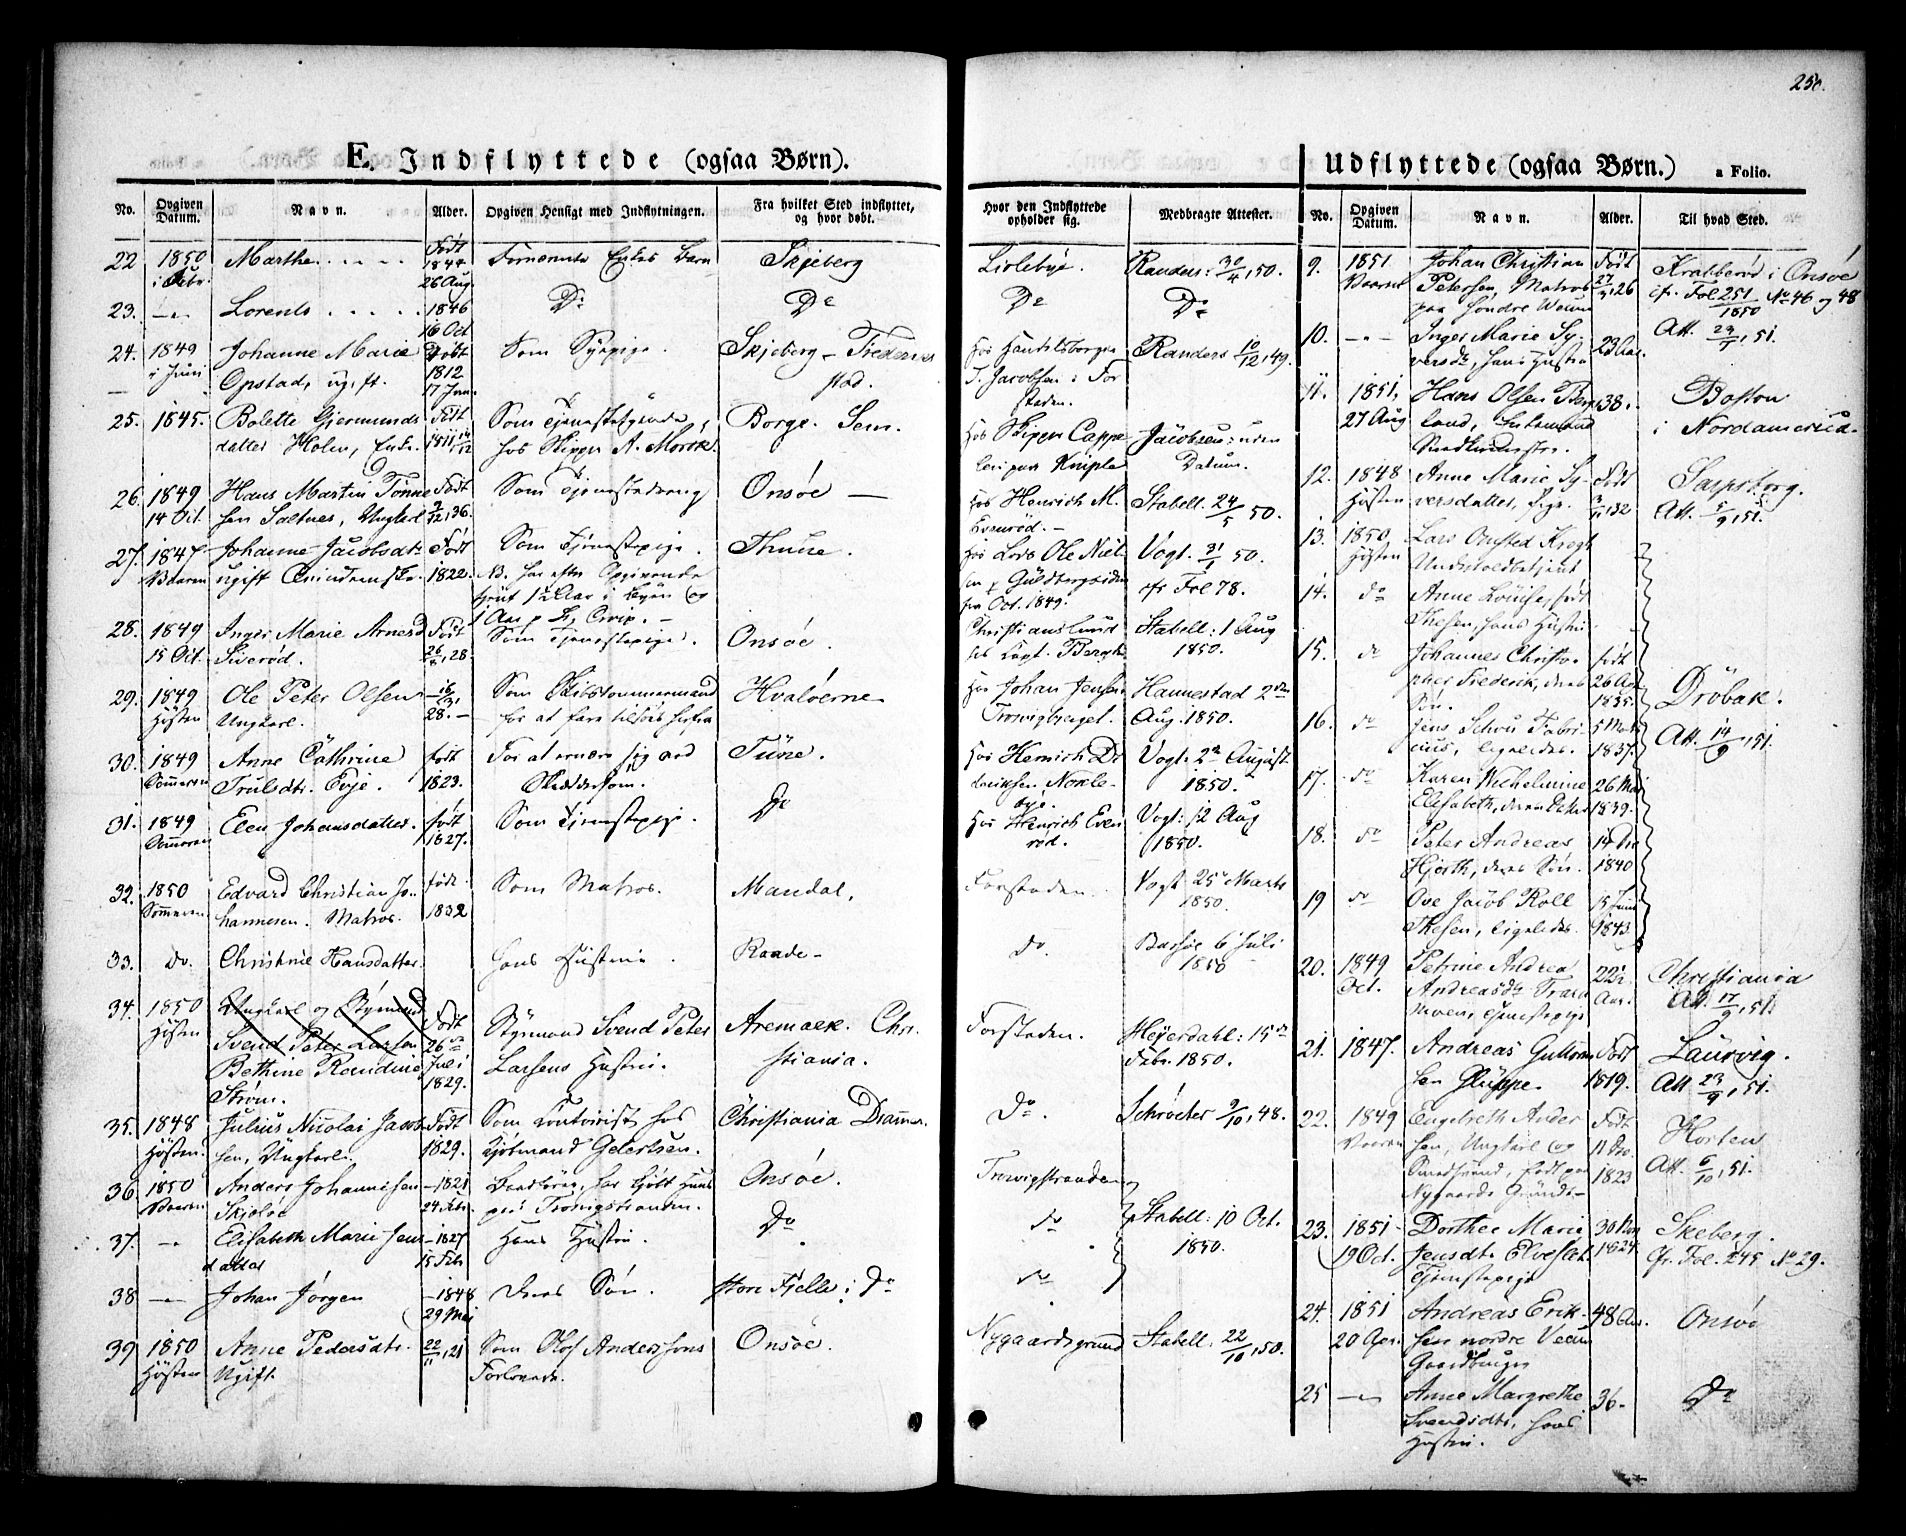 250.
E. Indflyttede (ogsaa Børn).
No. | Opgiven Datum. | Navn. | Alder. | Opgiven Hensigt med Indflytningen. | Fra hvilket Sted indflyttet, og hvor døbt.
22 1850 Marthe . . . . . Født 1844 26 Aug. Enkes Barn Skjeberg
23. Lorents . . . . . 1846 16 Oct Do Do
24. 1849 i Juni Johanne Marie Opstad, ugift. Døbt 1812 17 Jan. Som Sypige. Skjeberg – Frederikstad.
25. 1845. Bolette Gjermundsdatter Holm, Enke. Født 1811 14/12 Som Tjenestetyende hos Skipper A. Morck. Borge. Sem.
26. 1849 14 Oct. Hans Martin Tønnesen Saltnes, Ungkarl Født 9/12, 36. Som Tjenestedreng Onsøe –
27. 1847 Vaaren Johanne Jacobsdtr. ugift Født 1822. Som Tjenestepige. Thune.
28. 1849 15 Oct. Inger Marie Arnesd Siverød. Født 28. Som Tjenestepige. Onsøe.
29. 1849 Høsten Ole Peter Olsen Ungkarl. 28. – Som Skibstømmermand Hvaløerne
30. 1849 Sommeren Anne Cathrine Trulsdtr. Evje. født 1823. For at ernære sig ved Skræddersøm. Tüne.
31. 1849 Sommeren Elen Johansdatter. født 1827. Som Tjenestepige. Do
32. 1850 Sommeren Edvard Christian Johannesen. Matros. født 1832 Som Matros. Mandal.
33. do. Christine Hansdatter. Hans Hustrue. Raade –
34. 1850 Høsten Ungkarl og Styrmand Svend Peter Larsen Bethine Randine Strøm. Født 26de Juli 1829. Styrmand Svend Peter Larsens Hustrue. Aremark. Christiania.
35. 1848 Høsten. Julius Nicolai Jacobsen, Ungkarl. Født 1829. Som Contorist hos Kjøbmand Getertsen. Christiania Drammen.
36. 1850 Vaaren Anders Johannesen Skjeløe – 1821 24 Febr. Onsøe.
37. Elisabeth Marie Jensdatter – 1827 15 Febr Hans Hustrue. Do
38 Johan Jørgen – 1848 29 Mai Deres Søn. Store Fjelle i Do
39 1850 Høsten Anne Pedersdtr. Ugift. 22/11, 21 Som Olof Anderssons Forlovede. Onsøe.
Hvor den Indflyttede opholder sig. | Medbragte Attester.
Lislebye. Randers: 30/4, 50.
Do Do
T. Jacobsen i Forstaden. Randers 10/12, 49.
Hos Skipper Cappelen paa Kniple Jacobsen: uden Datum.
Hos Henrich M. Evenrød. – Stabell. 24/5 50.
Hos Lods Ole Nielsen p Güldbergsiden fra Oct. 1849. Vogt. 31/1 50. cfr Fol 78.
Christianslund Stabell: 1 Aug 1850.
Hos Johan Jensen Trosvigberget. Hannestad 2den Aug. 1850.
Hos Henrich Vogt: 2den August 1850.
Hos Henrich Evenrød. Vogt: 12 Aug 1850.
Forstaden. Vogt 25 Marts 1850.
do. 6 Juli 1850
Forstaden. Heyerdahl: 15de Febr. 1850.
Do. Schrøeter 9/10, 48.
Trosvigstranden
do Stabell: 10 Oct. 1850.
do
Nygaardsgrund Stabell: 22/10, 50.
Udflyttede (ogsaa Børn.) a Folio.
No. | Opgiven Datum. | Navn. | Alder. | Til hvad Sted.
9. 1851 Vaaren Johan Christian Petersen, Matros paa Søndre Født 27/3, 26 Krabberød i Onsøe cfr. Fol 251/1850 No 46 og 48
10. Inger Marie Syversdtr, hans Hustru 23 Aar. Att. 23/7, 51.
11. 1851, 27 Aug Hans Olsen Bergland, 38. Boston i Nordamerica.
12. 1848 Høsten Anne Marie Syversdatter, Pige. Født 3/11, 32 Sarpsborg. Att. 5/9, 51.
13. 1850 Høsten Lars Onsted Krogh Underfoldbetjent
14. do Anne Louise, født Thesen, hans Hustru.
15. do Johannes Christopher Frederik, deres Søn. født 26 Aug 1835. Drøbak.
16. do Jens Schou Fabricius, ligeledes. 1837. Att. 14/9, 51.
17. do Karen Wilhelmine Elisabeth, deres Datter 26 Mai 1839.
18. do Peter Andreas Hjorth, deres Søn. 1840
19 do Ove Jacob Roll Thesen, ligeledes. 15 Juni 1843.
20. 1849 Oct. Petrine Andrea Andreasdtr tjenestepige 22 Aar. Christiania Att. 17/9, 51.
21. 1847. Andreas Guttormsen Glüppe. Født 1819. Laurvig. Att 23/9, 51.
22. 1849 Vaaren Engebreth Andersen, Ungkarl og Smedsvend, født paa Nygaards Grund – Født 1823 Horten Att. 6/10, 51.
23. 1851 – 19 Oct. Dorthee Marie Jensdtr. Tjenestepige 30 1824. Skeberg. Cfr. Fol. 245 No 29.
24. 1851 20 Apr. Andreas Eriksen nordre Veum Gaardbruger 48 Aar. Onsø
25 Anne Margrethe Svendsdtr, hans Hustru. 36 – Do